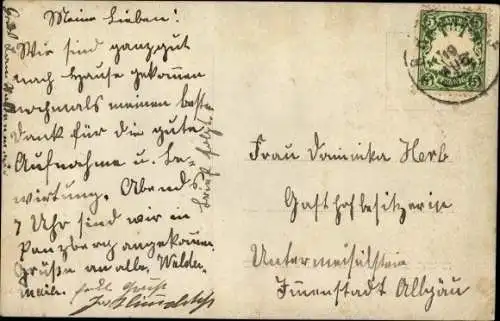 Meine Lieben!
Wir sind ganz gut
nach Hause gekommen
nochmals meinen besten
Dank für die gute
Aufnahme u. Be-
wirtung. Abends
7 Uhr sind wir in
Penzberg angekommen.
Grüße an alle, Walder-
maile.
Brief folgt
Frau Dominika Herb
Gasthofbesitzerin
Untermeiselstein
Immenstadt Allgäu
5 5